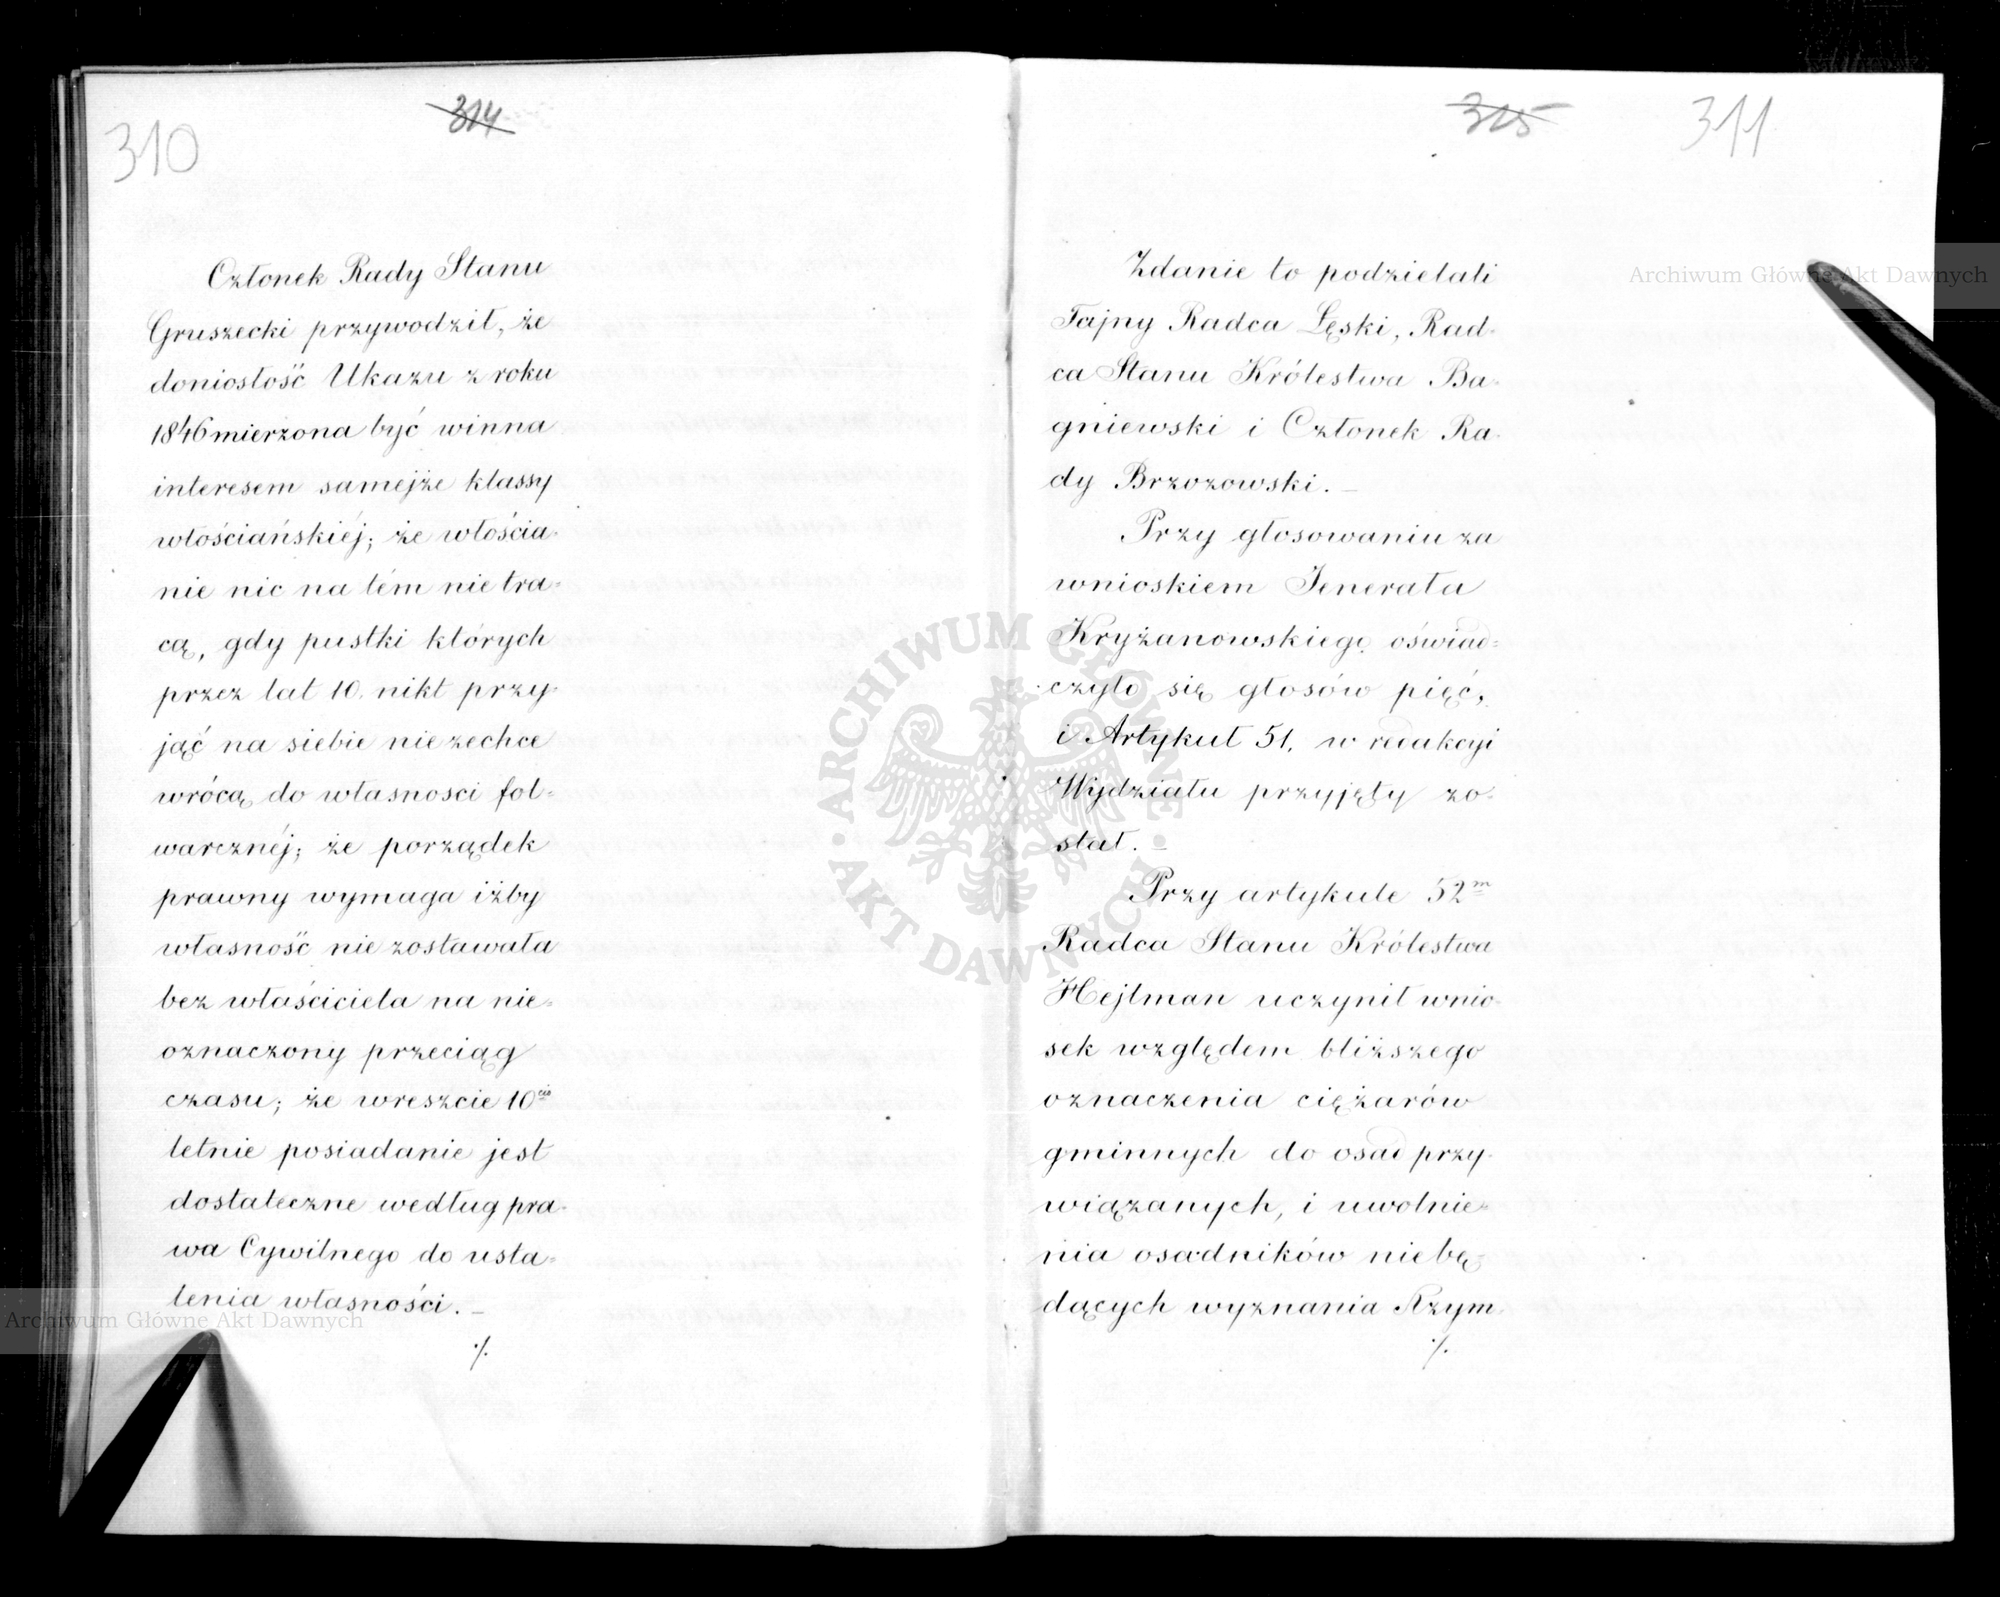 310
314
Członek Rady Stanu
Gruszecki przywodził, że
doniosłość Ukazu z roku
1846 mierzona być winna
interesem samejże klassy
włościańskiéj; że włościa-
nie nic na tém nie tra-
cą, gdy pustki których
przez lat 10. nikt przy-
jąć na siebie nie zechce
wrócą do własności fol-
warcznéj; że porządek
prawny wymaga iżby
własność nie zostawała
bez właściciela na nie-
oznaczony przeciąg
czasu; że wreszcie 10cio
letnie posiadanie jest
dostateczne według pra-
wa Cywilnego do usta-
lenia własności. —
./.
315
311
Zdanie to podzielali
Tajny Radca Łęski, Rad-
ca Stanu Królestwa Ba-
gniewski i Członek Ra-
dy Brzozowski. —
Przy głosowaniu za
wnioskiem Jenerała
Kryżanowskiego oświad-
czyło się głosów pięć,
i Artykuł 51. w redakcyi
Wydziału przyjęty zo-
stał. —
Przy artykule 52m
Radca Stanu Królestwa
Hejlman uczynił wnio-
sek względem bliższego
oznaczenia ciężarów
gminnych do osad przy-
wiązanych, i uwolnie-
nia osadników niebę-
dących wyznania Rzym-
./.
Archiwum Główne Akt Dawnych
Archiwum Główne Akt Dawnych
ARCHIWUM GŁÓWNE AKT DAWNYCH